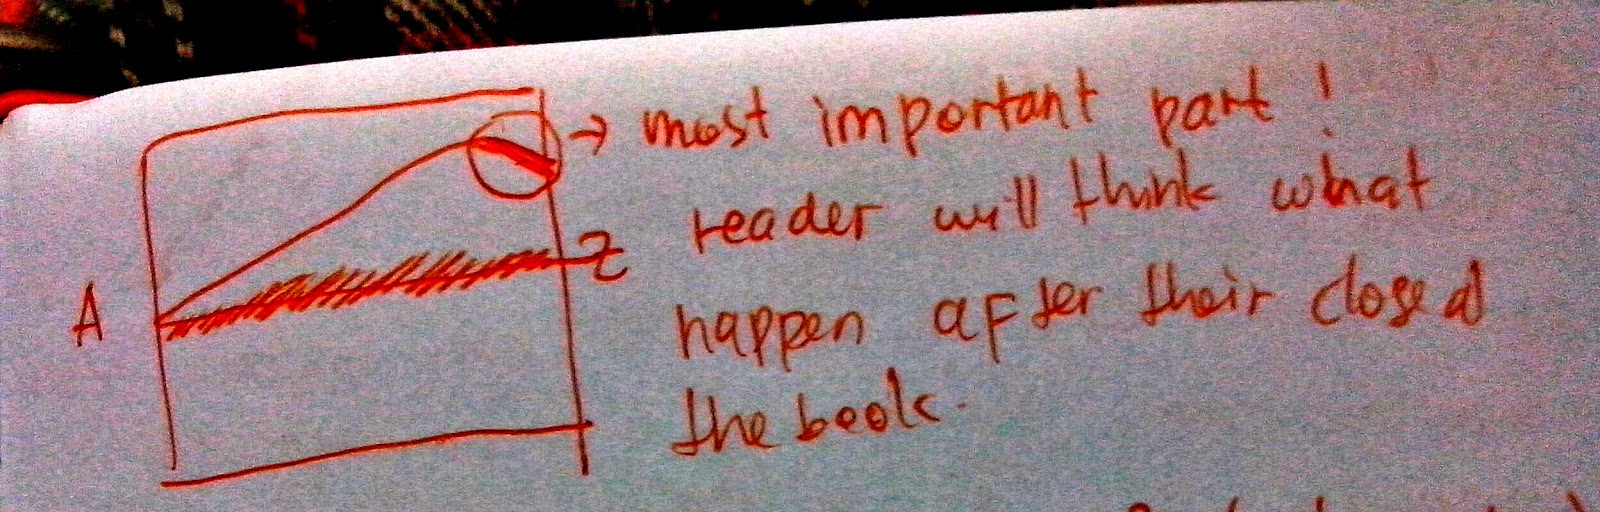 → most important part!
reader will think what
A
Z
happen after their closed
the book.